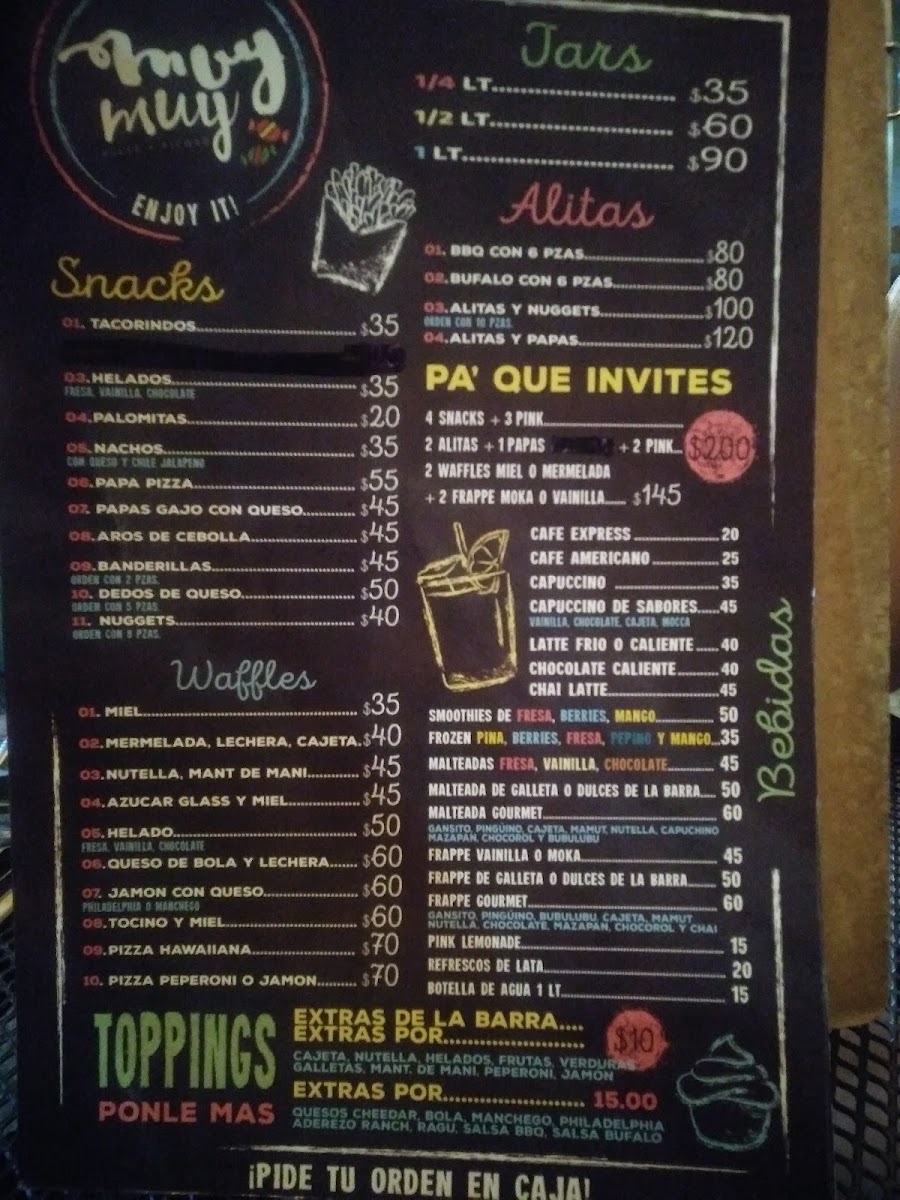 muy
muy
ENJOY IT!
Snacks
01. TACORINDOS $35
03. HELADOS $35
FRESA, VAINILLA, CHOCOLATE
04. PALOMITAS $20
05. NACHOS $35
CON QUESO Y CHILE JALAPEÑO
06. PAPA PIZZA $55
07. PAPAS GAJO CON QUESO $45
08. AROS DE CEBOLLA $45
09. BANDERILLAS $45
ORDEN CON 2 PZAS.
10. DEDOS DE QUESO $50
ORDEN CON 5 PZAS.
11. NUGGETS $40
ORDEN CON 8 PZAS.
Waffles
01. MIEL $35
02. MERMELADA, LECHERA, CAJETA. $40
03. NUTELLA, MANT DE MANI $45
04. AZUCAR GLASS Y MIEL $45
05. HELADO $50
FRESA, VAINILLA, CHOCOLATE
06. QUESO DE BOLA Y LECHERA $60
07. JAMON CON QUESO $60
PHILADELPHIA O MANCHEGO
08. TOCINO Y MIEL $60
09. PIZZA HAWAIIANA $70
10. PIZZA PEPERONI O JAMON $70
Jars
1/4 LT $35
1/2 LT $60
1 LT $90
Alitas
01. BBQ CON 6 PZAS $80
02. BUFALO CON 6 PZAS $80
03. ALITAS Y NUGGETS $100
ORDEN CON 10 PZAS.
04. ALITAS Y PAPAS $120
PA' QUE INVITES
4 SNACKS + 3 PINK
2 ALITAS + 1 PAPAS + 2 PINK $200
2 WAFFLES MIEL O MERMELADA
+ 2 FRAPPE MOKA O VAINILLA $145
Bebidas
CAFE EXPRESS 20
CAFE AMERICANO 25
CAPUCCINO 35
CAPUCCINO DE SABORES 45
VAINILLA, CHOCOLATE, CAJETA, MOCCA
LATTE FRIO O CALIENTE 40
CHOCOLATE CALIENTE 40
CHAI LATTE 45
SMOOTHIES DE FRESA, BERRIES, MANGO 50
FROZEN PINA, BERRIES, FRESA, PEPINO Y MANGO 35
MALTEADAS FRESA, VAINILLA, CHOCOLATE 45
MALTEADA DE GALLETA O DULCES DE LA BARRA 50
MALTEADA GOURMET 60
GANSITO, PINGÜINO, CAJETA, MAMUT, NUTELLA, CAPUCHINO
MAZAPAN, CHOCOROL Y BUBULUBU
FRAPPE VAINILLA O MOKA 45
FRAPPE DE GALLETA O DULCES DE LA BARRA 50
FRAPPE GOURMET 60
GANSITO, PINGÜINO, BUBULUBU, CAJETA, MAMUT
NUTELLA, CHOCOLATE, MAZAPAN, CHOCOROL Y CHAI
PINK LEMONADE 15
REFRESCOS DE LATA 20
BOTELLA DE AGUA 1 LT 15
TOPPINGS
PONLE MAS
EXTRAS DE LA BARRA....
EXTRAS POR $10
CAJETA, NUTELLA, HELADOS, FRUTAS, VERDURAS
GALLETAS, MANT. DE MANI, PEPERONI, JAMON
EXTRAS POR 15.00
QUESOS CHEEDAR, BOLA, MANCHEGO, PHILADELPHIA
ADEREZO RANCH, RAGU, SALSA BBQ, SALSA BUFALO
¡PIDE TU ORDEN EN CAJA!